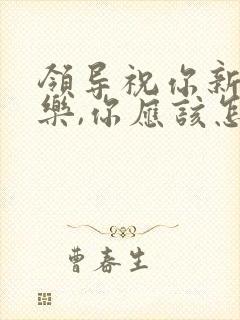 領导祝你新
樂,你應該怎
曹春生